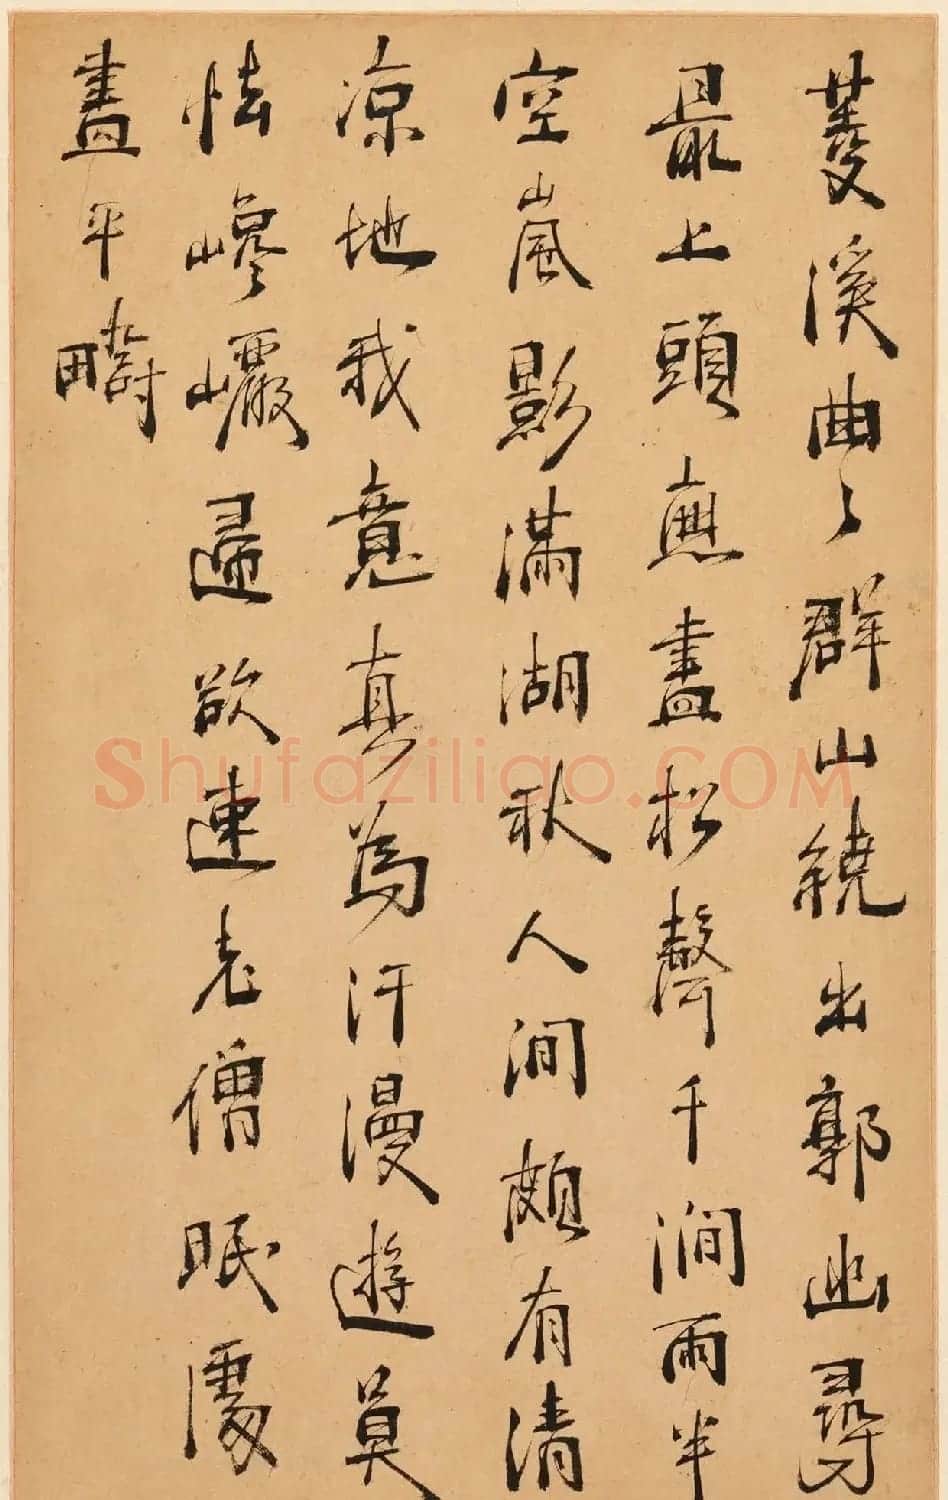 菱溪曲々群山繞出郭幽尋
最上頭無盡松聲千澗雨半
空嵐影滿湖秋人間頗有清
凉地我意真為汗漫遊莫
怯巉巖歸欲速老僧眠處
盡平疇
Shufaziliao.COM